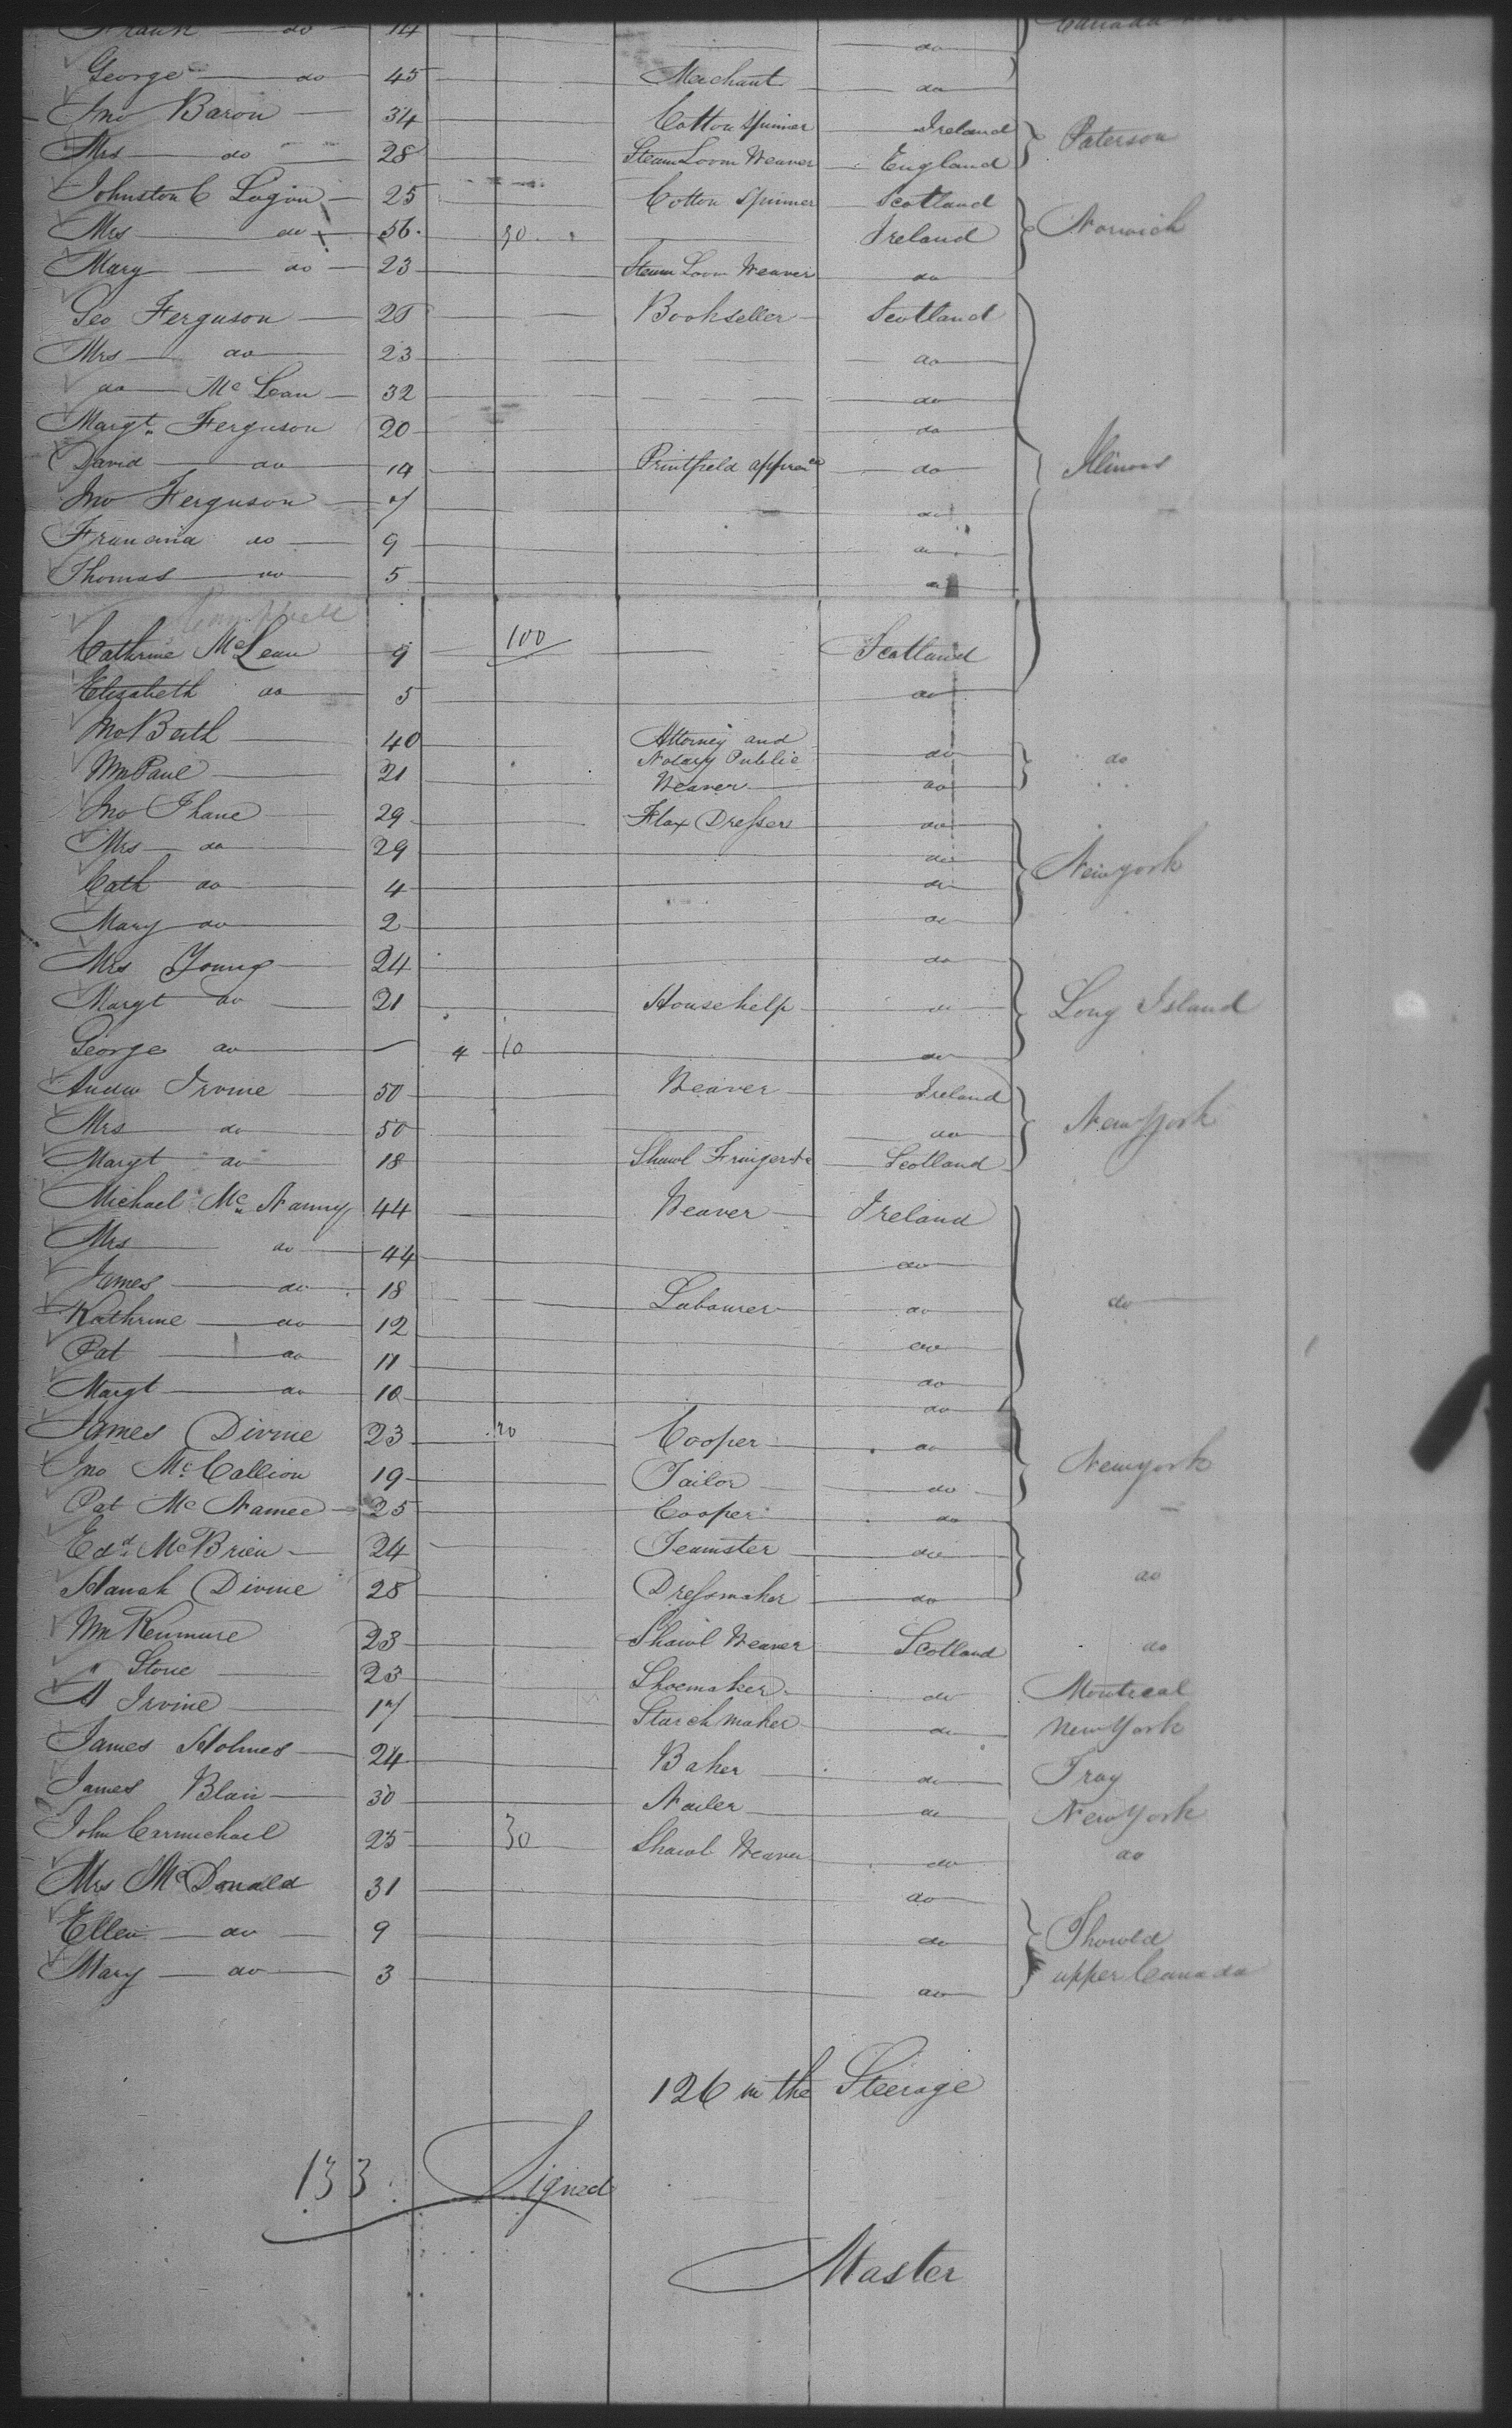 Frank do 14 do Canada
George do 45 Merchant do
Jno Baron 34 Cotton Spinner Ireland Paterson
Mrs do 28 Steam Loom Weaver England
Johnston C Logan 25 Cotton Spinner Scotland
Mrs do 56 Ireland Norwich
Mary do 23 Steam Loom Weaver do
Geo Ferguson Bookseller Scotland
Mrs do 23 do
do McLean 32 do
Margt Ferguson 20 do
David do 14 Printfield do Illinois
Jno Ferguson 7 do
do 9 do
Thomas do 5 do
Cathrine McLean 9 100 Scotland
Elizabeth do 5 do
Jno 40 Attorney and
Notary Public do do
Wm Paul 21 Weaver do
Jno Thane 29 Flax Dresser do
Mrs do 29 do Newyork
Cath do 4 do
Mary do 2 do
Mrs Young 24 do
Margt do 21 Househelp do Long Island
George do 4 10 do
Andw Irvine 50 Weaver Ireland
Mrs do 50 do New York
Margt do 18 Shawl Scotland
Michael Mc Nanny 44 Weaver Ireland
Mrs do 44 do
James do 18 Labourer do do
Kathrine do 12 do
Pat do 11 do
Margt do 10 do
James Divine 23 Cooper do
Jno McCallion 19 Tailor do Newyork
Pat Mc Namee 25 Cooper do
Edd McBrien 24 Teamster do
Hanah Divine 28 Dressmaker do do
Wm Kenmure 23 Shawl Weaver Scotland do
" Stone 23 Shoemaker do Montreal
Irvine 17 Starch Maker do New York
James Holmes 24 Baker do Troy
James Blair 30 Nailer do New York
John Carmichael 25 30 Shawl Weaver do do
Mrs McDonald 31 do
Ellen do 9 do Thorold
Mary do 3 do upper Canada
126 in the Steerage
133 Signed
Master